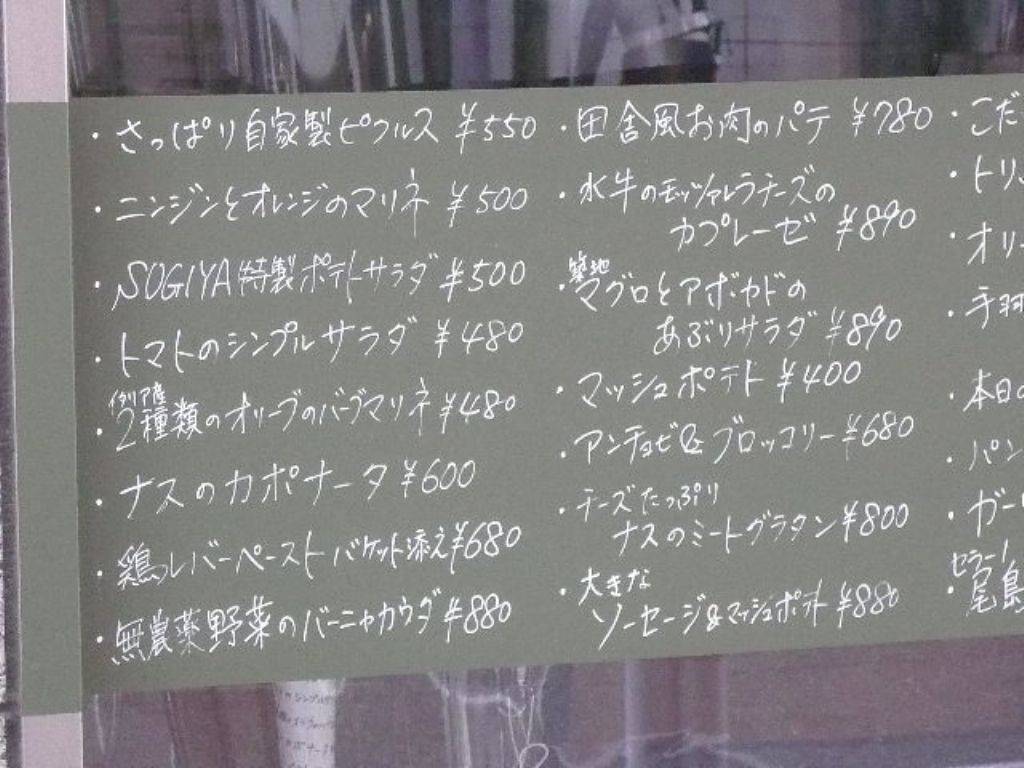 ・さっぱり自家製ピクルス ¥550
・ニンジンとオレンジのマリネ ¥500
・SOGIYA特製ポテトサラダ ¥500
・トマトのシンプルサラダ ¥480
イタリア産
・2種類のオリーブのハーブマリネ ¥480
・ナスのカポナータ ¥600
・鶏レバーペースト バケット添え ¥680
・無農薬野菜のバーニャカウダ ¥880
・田舎風お肉のパテ ¥780
・水牛のモッツァレラチーズの
カプレーゼ ¥890
築地
・マグロとアボカドの
あぶりサラダ ¥890
・マッシュポテト ¥400
・アンチョビ&ブロッコリー ¥680
・チーズたっぷり
ナスのミートグラタン ¥800
・大きな
ソーセージ&マッシュポテト ¥880
・こだ
・トリ
・オリ
・手羽
・本日の
・パン
・ガー
セラー!
・尾島